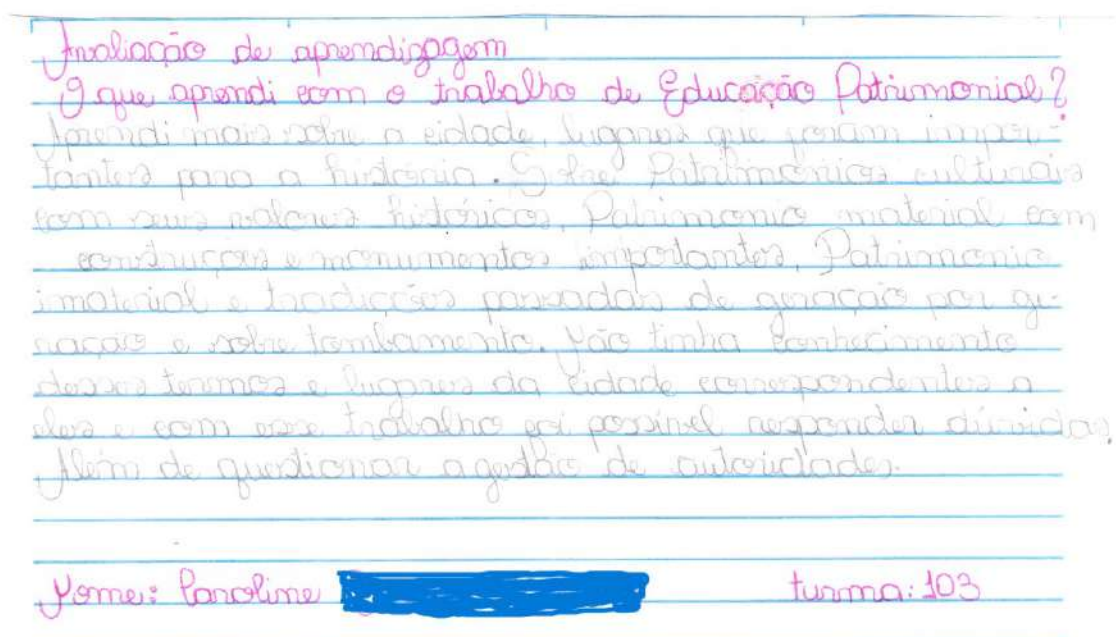 Avaliação de aprendizagem
O que aprendi com o trabalho de Educação Patrimonial?
Aprendi mais sobre a cidade, lugares que foram impor-
tantes para a história. Sobre Patrimônios culturais
com seus valores históricos, Patrimonio material com
construções e monumentos importantes, Patrimonio
imaterial e tradições passadas de geração por ge-
ração e sobre tombamento. Não tinha conhecimento
desses termos e lugares da cidade correspondentes a
eles e com esse trabalho foi possível responder dúvidas.
Além de questionar a gestão de autoridades.
Nome: Caroline
turma: 103